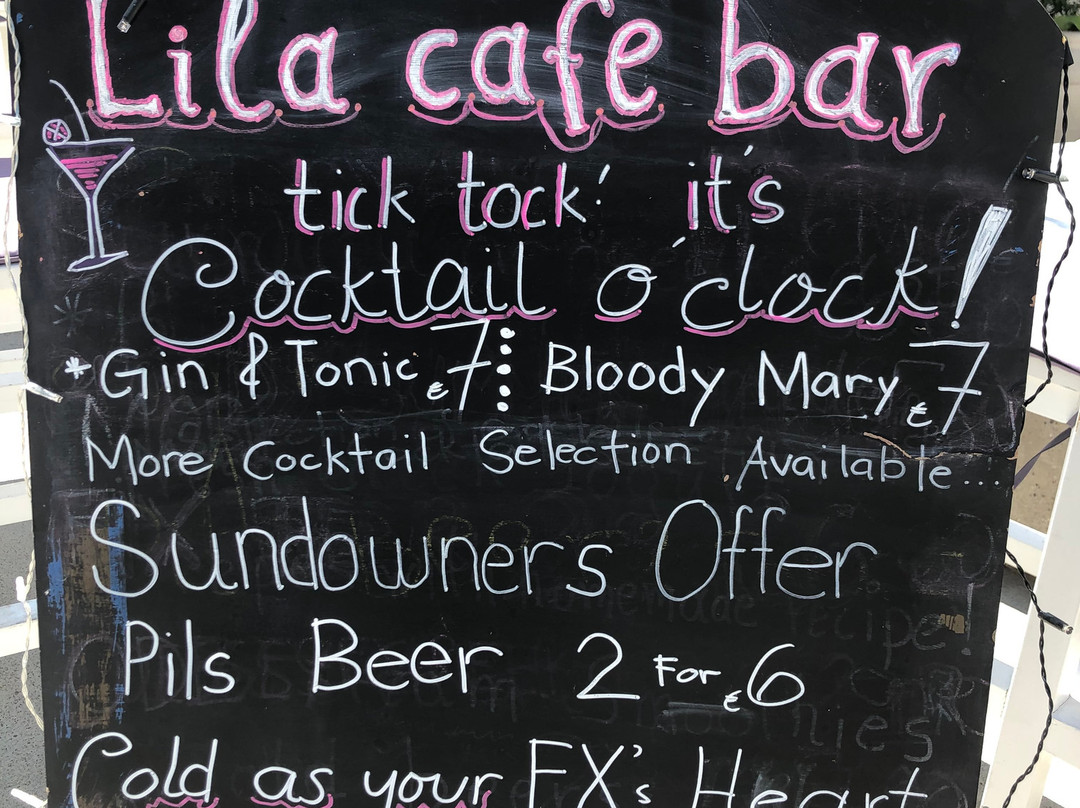 Lila cafe bar
tick tock! it's
Cocktail o'clock!
*Gin & Tonic €7 Bloody Mary €7
More Cocktail Selection Available...
Sundowners Offer
Pils Beer 2 For €6
Cold as your EX's Heart